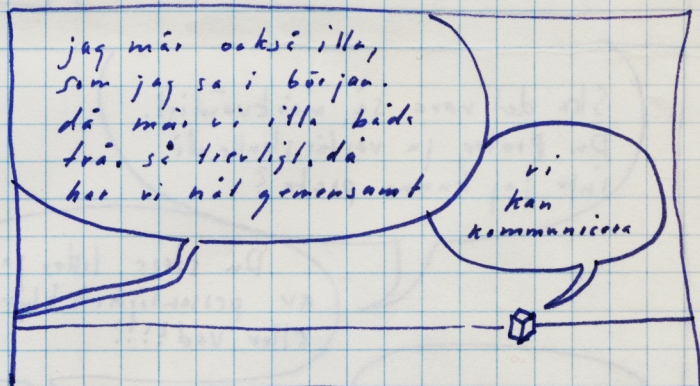 jag mår också illa,
som jag sa i början.
då mår vi illa båda
två. så trevligt. då
har vi nåt gemensamt
vi
kan
kommunicera